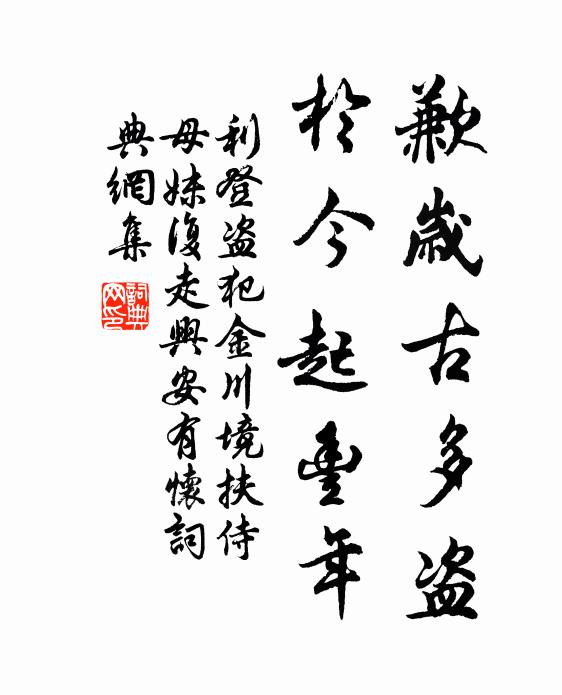 歉歲古多盜
於今起豐年
利登盜犯金川境扶侍
母妹復走興安有懷詞
典網集
詞典网印